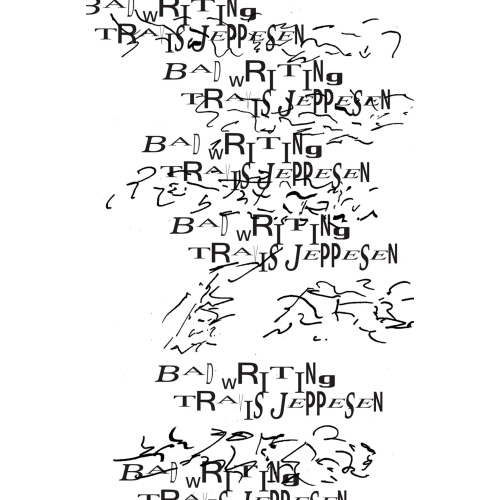 BAD wRITINg
TRAVIS JEPPESEN
BAD wRITINg
TRAVIS JEPPESEN
BAD wRITINg
TRAVIS JEPPESEN
BAD wRITINg
TRAVIS JEPPESEN
BAD wRITINg
TRAVIS JEPPESEN
BAD wRITINg
TRAVIS JEPPESEN